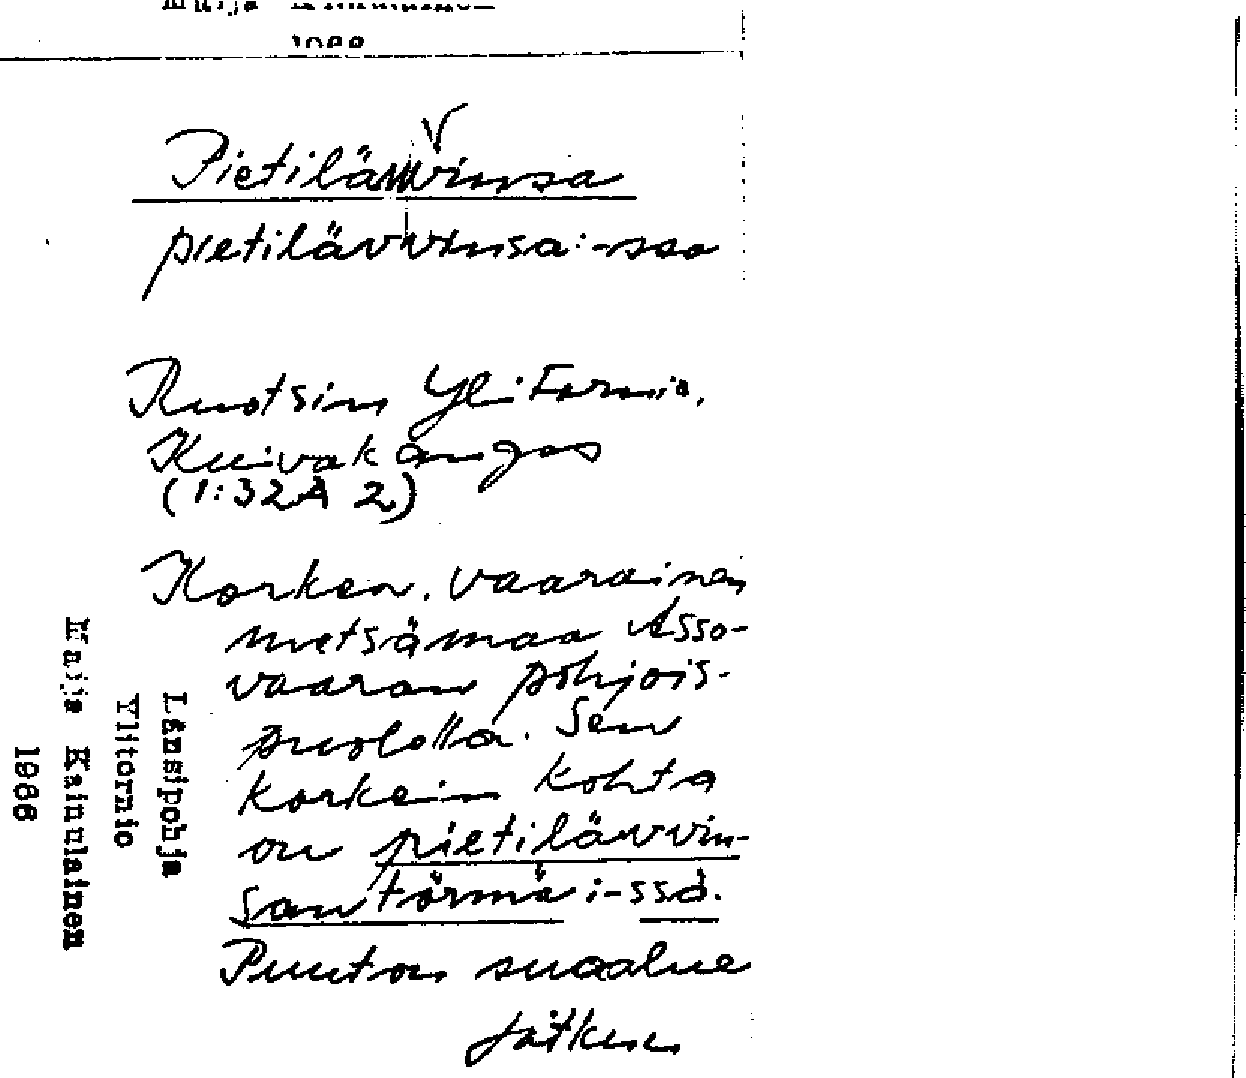 Maija
1988
Pietilänvinsa
pietilävvinsa:-ssa
Ruotsin Ylitornio,
Kuivakangas
(1:32A 2)
Korkea, vaarainen
metsämaa Asso-
vaaran pohjois-
puolella. Sen
korkein kohta
on pietilävvin-
san törmä:-ssä.
Puuton suoalue
jatkuu
Länsipohja
Ylitornio
Maija Kainulainen
1988